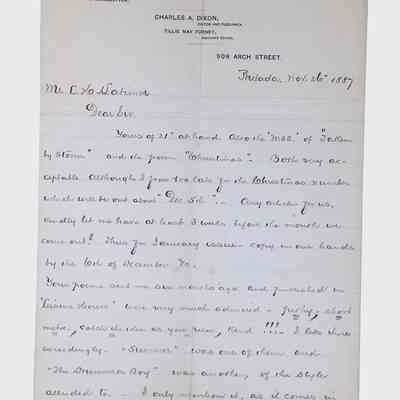 CHARLES A. DIXON,
EDITOR AND PUBLISHER.
TILLIE MAY FORNEY,
ASSOCIATE EDITOR.
908 ARCH STREET.
Philada, Nov. 26" 1887
Mr. C.
Dear Sir.
Yours of 21" at hand. Also the "MSS." of "Taken
by Storm" and the poem "Christmas". Both very ac-
ceptable. Although too late for the Christmas number
which will be out about "Dec. 5th". - Any articles for us,
kindly let us have at least 3 weeks before the month we
come out. Thus for January issue copy in our hands
by the 6th of December
Your poems sent me months ago and published in
were very much admired - short
catch the idea as you run, kind !!! I like these
exceedingly. was one of them, and
"The Drummer Boy" was another, of the style
alluded to - I only mention it, as it comes in